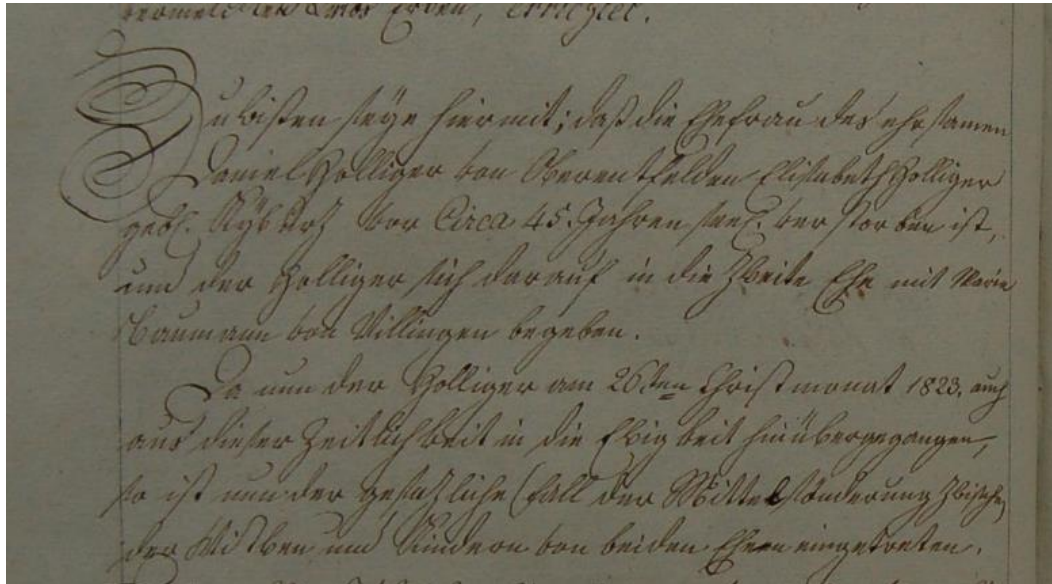 vermeldten Erben, errichtet.
Zu wißen seye hiermit; daß die Ehefrau des ehrsamen
Daniel Holliger von Oberentfelden Elisabeth Holliger
gebh. Kyburz vor Circa 45. Jahren seel. verstorben ist,
und der Holliger sich darauf in die Zweite Ehe mit Maria
Baumann von Villingen begeben.
Da nun der Holliger am 26sten Christmonat 1823. auch
aus dieser Zeitlichkeit in die Ewigkeit hinübergegangen,
so ist nun der gesetzliche Fall der Mittelsönderung Zwischen
der Wittwen und Kindern von beiden Ehen eingetreten.